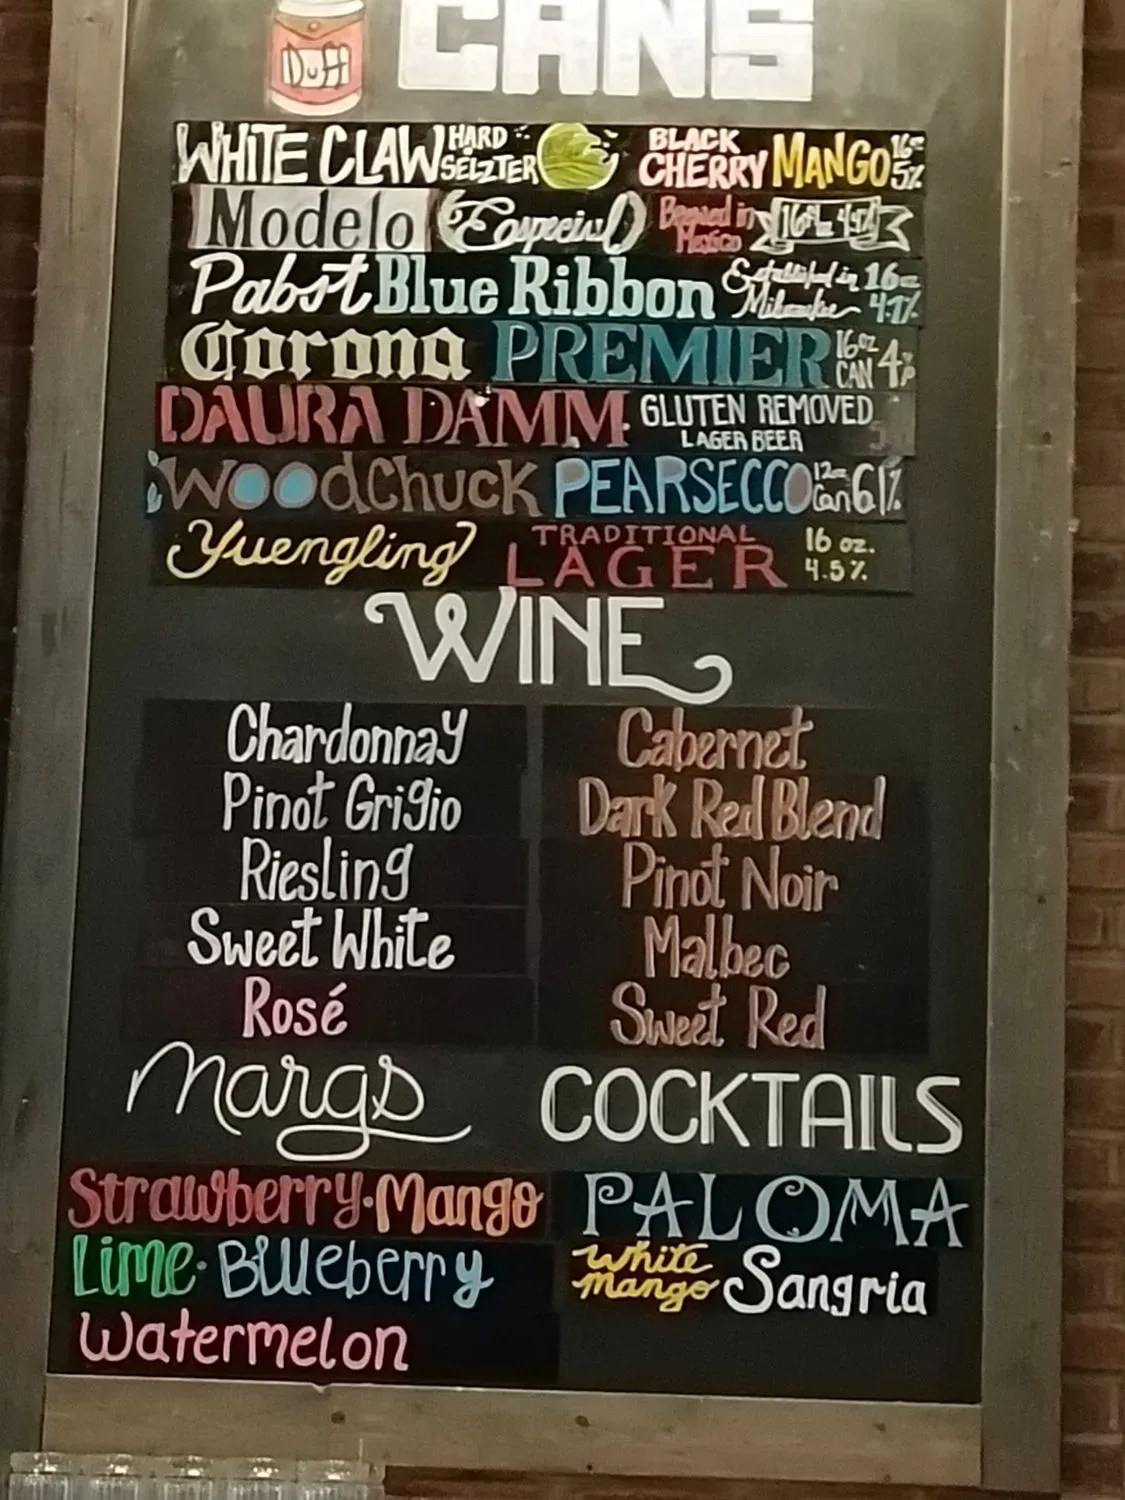 Duff CANS
WHITE CLAW HARD SELZTER BLACK CHERRY MANGO 16oz 5%
Modelo Especial Brewed in Mexico 16
Pabst Blue Ribbon Established in Milwaukee 16oz 4.7%
Corona PREMIER 16oz CAN 4%
DAURA DAMM GLUTEN REMOVED LAGER BEER
WOODCHUCK PEARSECCO 12oz Can 6.1%
Yuengling TRADITIONAL LAGER 16 oz. 4.5%
WINE
Chardonnay Cabernet
Pinot Grigio Dark Red Blend
Riesling Pinot Noir
Sweet White Malbec
Rosé Sweet Red
Margs COCKTAILS
Strawberry · Mango PALOMA
Lime · Blueberry White Mango Sangria
Watermelon